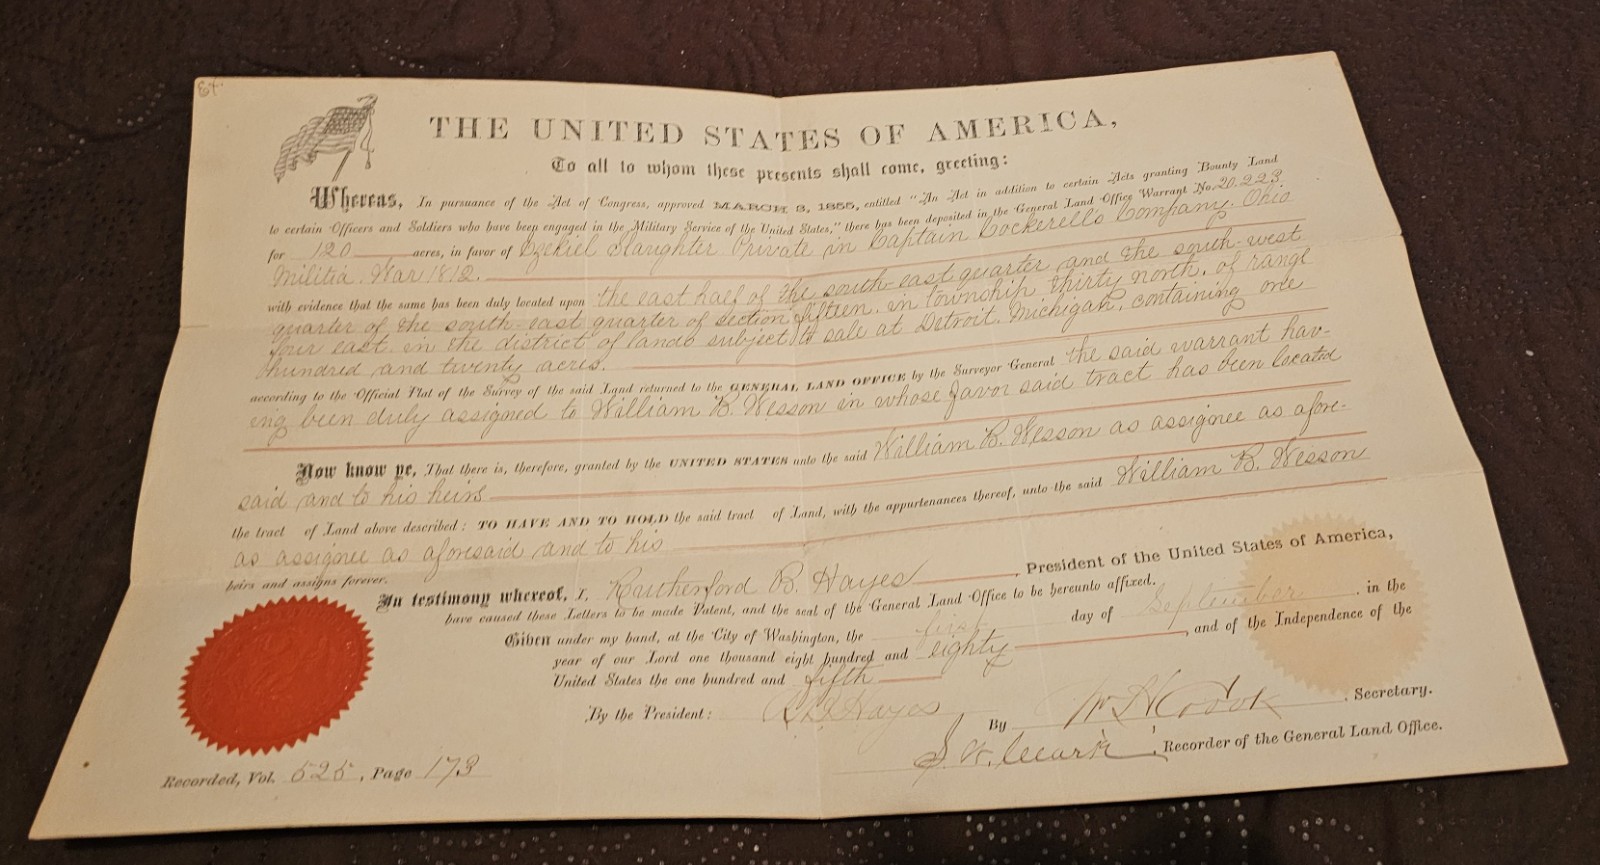 84.
THE UNITED STATES OF AMERICA,
To all to whom these presents shall come, greeting:
Whereas, In pursuance of the Act of Congress, approved MARCH 3, 1855, entitled "An Act in addition to certain Acts granting Bounty Land
to certain Officers and Soldiers who have been engaged in the Military Service of the United States," there has been deposited in the General Land Office Warrant No. 20.223
for 120 acres, in favor of Ezekiel Slaughter Private in Captain Cockerell's Company, Ohio
Militia. War 1812.
with evidence that the same has been duly located upon the east half of the south-east quarter and the south-west
quarter of the south-east quarter of section fifteen, in township thirty north, of range
four east in the district of lands subject to sale at Detroit, Michigan, containing one
hundred and twenty acres.
according to the Official Plat of the Survey of the said Land returned to the GENERAL LAND OFFICE by the Surveyor General the said warrant hav-
ing been duly assigned to William B. Wesson in whose favor said tract has been located
Now know ye, That there is, therefore, granted by the UNITED STATES unto the said William B. Wesson as assignee as afore-
said and to his heirs
the tract of Land above described: TO HAVE AND TO HOLD the said tract of Land, with the appurtenances thereof, unto the said William B. Wesson
as assignee as aforesaid and to his
heirs and assigns forever.
In testimony whereof, I, Rutherford B. Hayes, President of the United States of America,
have caused these Letters to be made Patent, and the seal of the General Land Office to be hereunto affixed.
Given under my hand, at the City of Washington, the first day of September, in the
year of our Lord one thousand eight hundred and eighty, and of the Independence of the
United States the one hundred and fifth
By the President: R. B. Hayes
By Wm H Crook, Secretary.
S. W. Clark, Recorder of the General Land Office.
Recorded, Vol. 525, Page 173